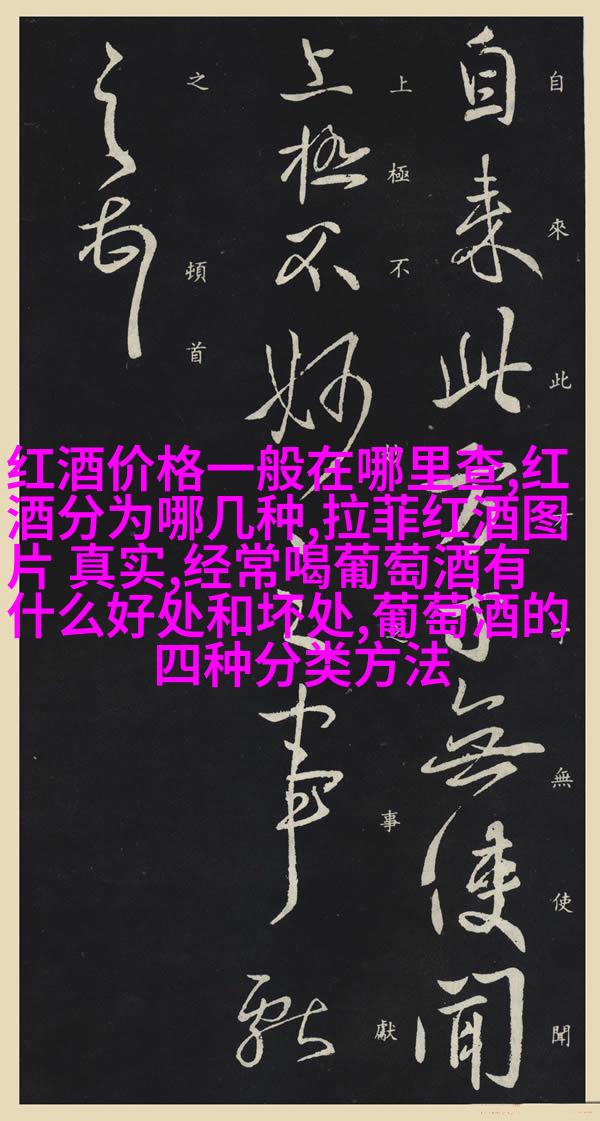 红酒价格一般在哪里查,红
酒分为哪几种,拉菲红酒图
片 真实,经常喝葡萄酒有
什么好处和坏处,葡萄酒的
四种分类方法
自來此無使聞
自來此無使聞
上極不妙事獻
上極不事獻
之頓首
之頓首